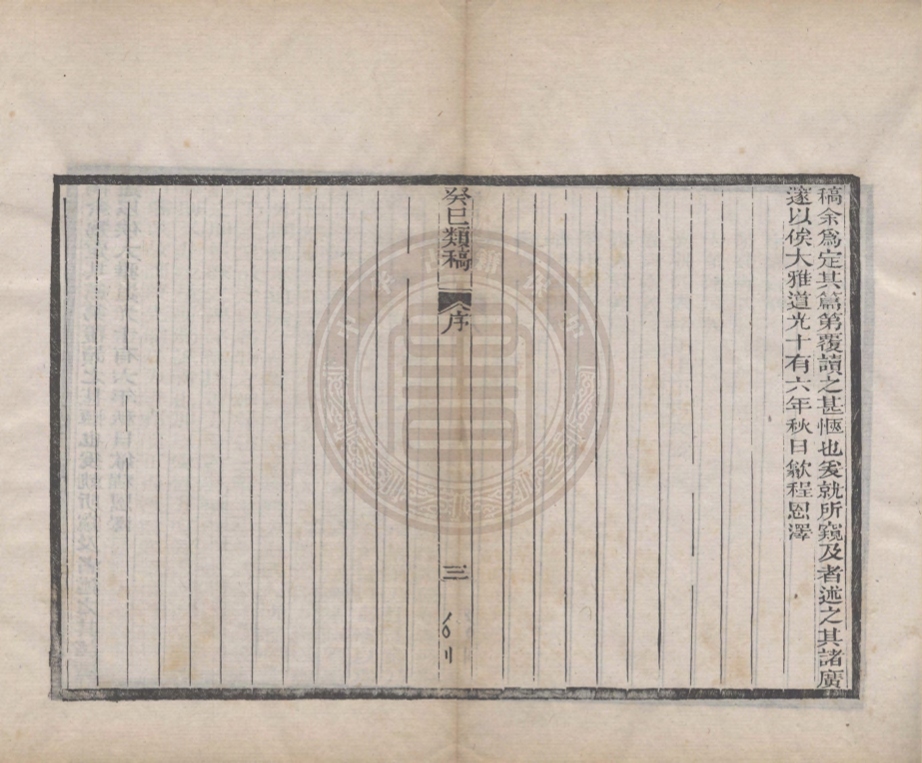 稿余爲定其篇第覆讀之甚愜也爰就所窺及者述之其諸廣
邃以俟大雅道光十有六年秋日歙程恩澤
癸巳類稿
序
三